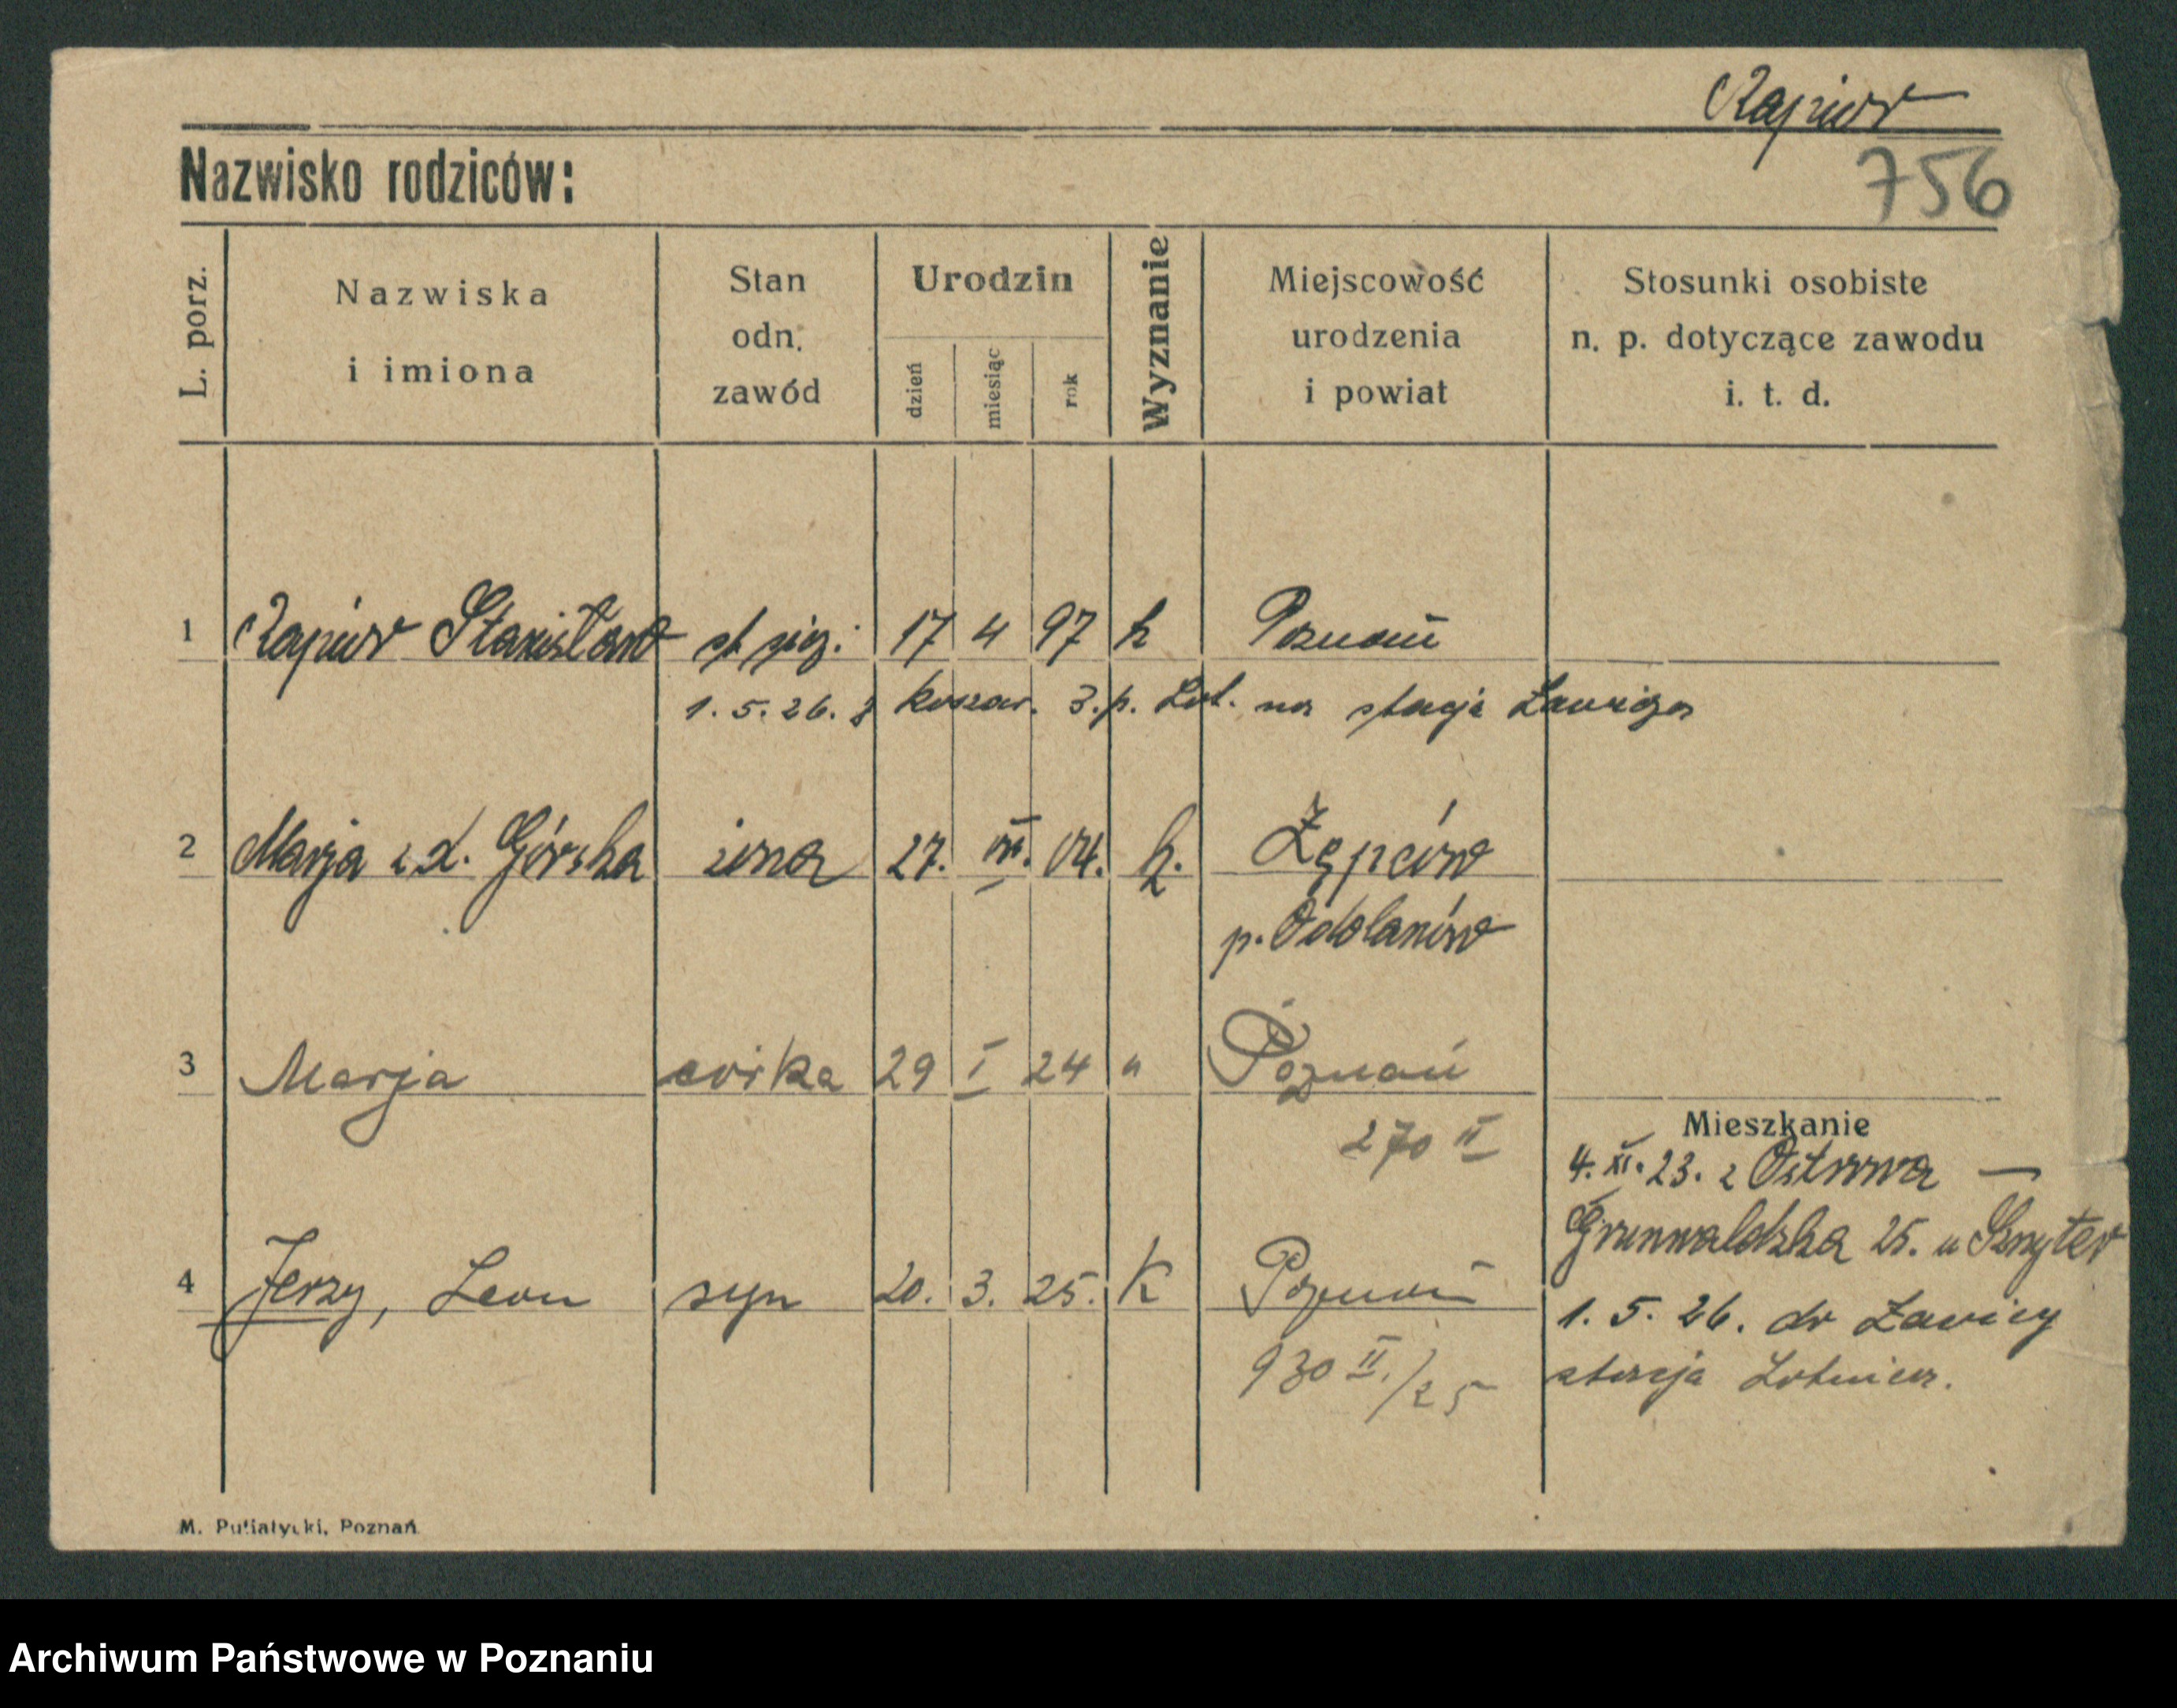 Rapior
756
Nazwisko rodziców:
L. porz.
Nazwiska
i imiona
Stan
odn.
zawód
Urodzin
dzień
miesiąc
rok
Wyznanie
Miejscowość
urodzenia
i powiat
Stosunki osobiste
n. p. dotyczące zawodu
i. t. d.
1 Rapior Stanisław 17 4 97 k Poznań
1. 5. 26. z koszar. 3. p. Lot. na stacje Ławica
2 Marja z d. Górska żona 27. 04. k.
p. Odolanów
3 Marja córka 29 I 24 " Poznań
270 II
Mieszkanie
4. XI. 23. z Ostrowa —
Grunwaldzka 25. u Sznyter
4 Jerzy, Leon syn 20. 3. 25. K Poznań
1. 5. 26. do Ławicy
930 II./25
stacja Lotnicza.
M. Putiatycki, Poznań
Archiwum Państwowe w Poznaniu